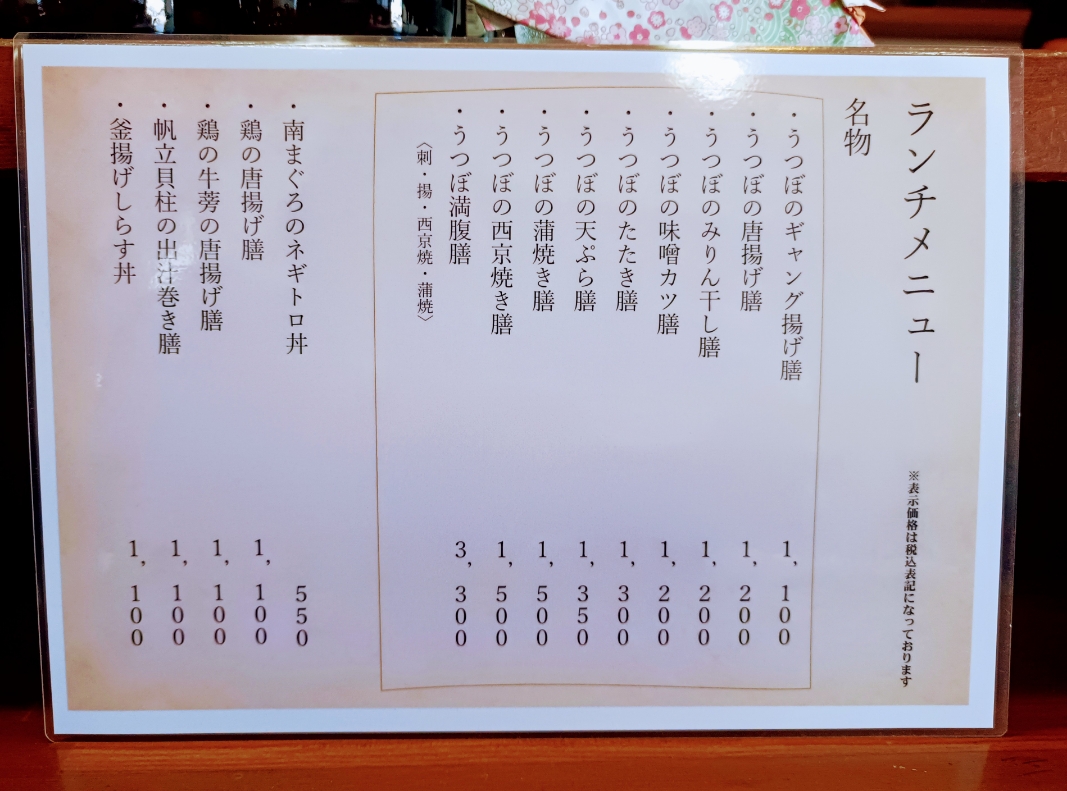 ランチメニュー
※表示価格は税込表記になっております
名物
・うつぼのギャング揚げ膳 1,100
・うつぼの唐揚げ膳 1,200
・うつぼのみりん干し膳 1,200
・うつぼの味噌カツ膳 1,200
・うつぼのたたき膳 1,300
・うつぼの天ぷら膳 1,350
・うつぼの蒲焼き膳 1,500
・うつぼの西京焼き膳 1,500
・うつぼ満腹膳 3,300
〈刺・揚・西京焼・蒲焼〉
・南まぐろのネギトロ丼 550
・鶏の唐揚げ膳 1,100
・鶏の牛蒡の唐揚げ膳 1,100
・帆立貝柱の出汁巻き膳 1,100
・釜揚げしらす丼 1,100